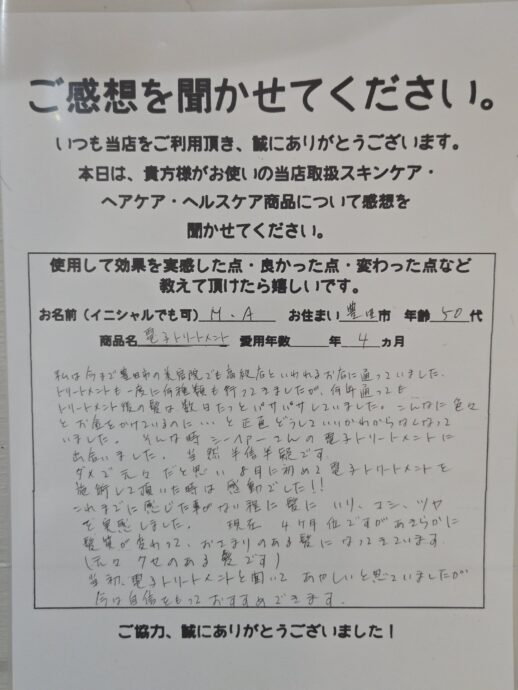 ご感想を聞かせてください。
いつも当店をご利用頂き、誠にありがとうございます。
本日は、貴方様がお使いの当店取扱スキンケア・
ヘアケア・ヘルスケア商品について感想を
聞かせてください。
使用して効果を実感した点・良かった点・変わった点など
教えて頂けたら嬉しいです。
お名前(イニシャルでも可) M・A お住まい 豊田市 年齢 50代
商品名 電子トリートメント 愛用年数 年 4ヵ月
私は今まで豊田市の美容院でも高級店といわれるお店に通っていました。
トリートメントも一度に何種類も行ってきましたが、何年通っても
トリートメント後の髪は数日たつとパサパサしていました。こんなに色々
とお金をかけているのに…と正直どうしていいかわからなくなって
いました。そんな時 さんの電子トリートメントに
出会いました。当然半信半疑です。
ダメで元々だと思い8月に初めて電子トリートメントを
施術して頂いた時は感動でした!!
これまでに感じた事がない程に髪にハリ、コシ、ツヤ
を実感しました。 現在4ヶ月位ですがあきらかに
髪質が変わって、おさまりのある髪になってきています。
(元々クセのある髪です)
当初、電子トリートメントと聞いてあやしいと思っていましたが
今は自信をもっておすすめできます。
ご協力、誠にありがとうございました!